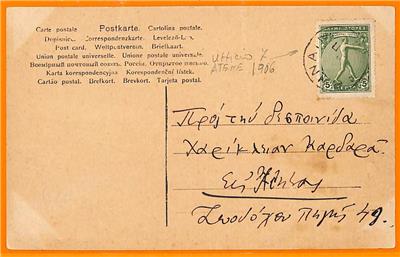 Carte postale. Postkarte. Cartolina postale.
Dopisnice. Correspondenzkarte. Levelező-L
Post card. Weltpostverein. Briefkaart.
Union postale universelle. Unione postale universale.
Всемірный почтовый союзъ. Россія. Открытое письмо.
Karta korespondencyjna Korespondenční lístek.
Cartão postal. Brefkort. Brevkort. Tarjeta postal.
Ufficio 7
ATENE 1906
Πρὸς τὴν δεσποινίδα
Χαρίκλειαν Καρδαρᾶ
Εἰς Ἀθήνας
Ζωοδόχου Πηγῆς 49.